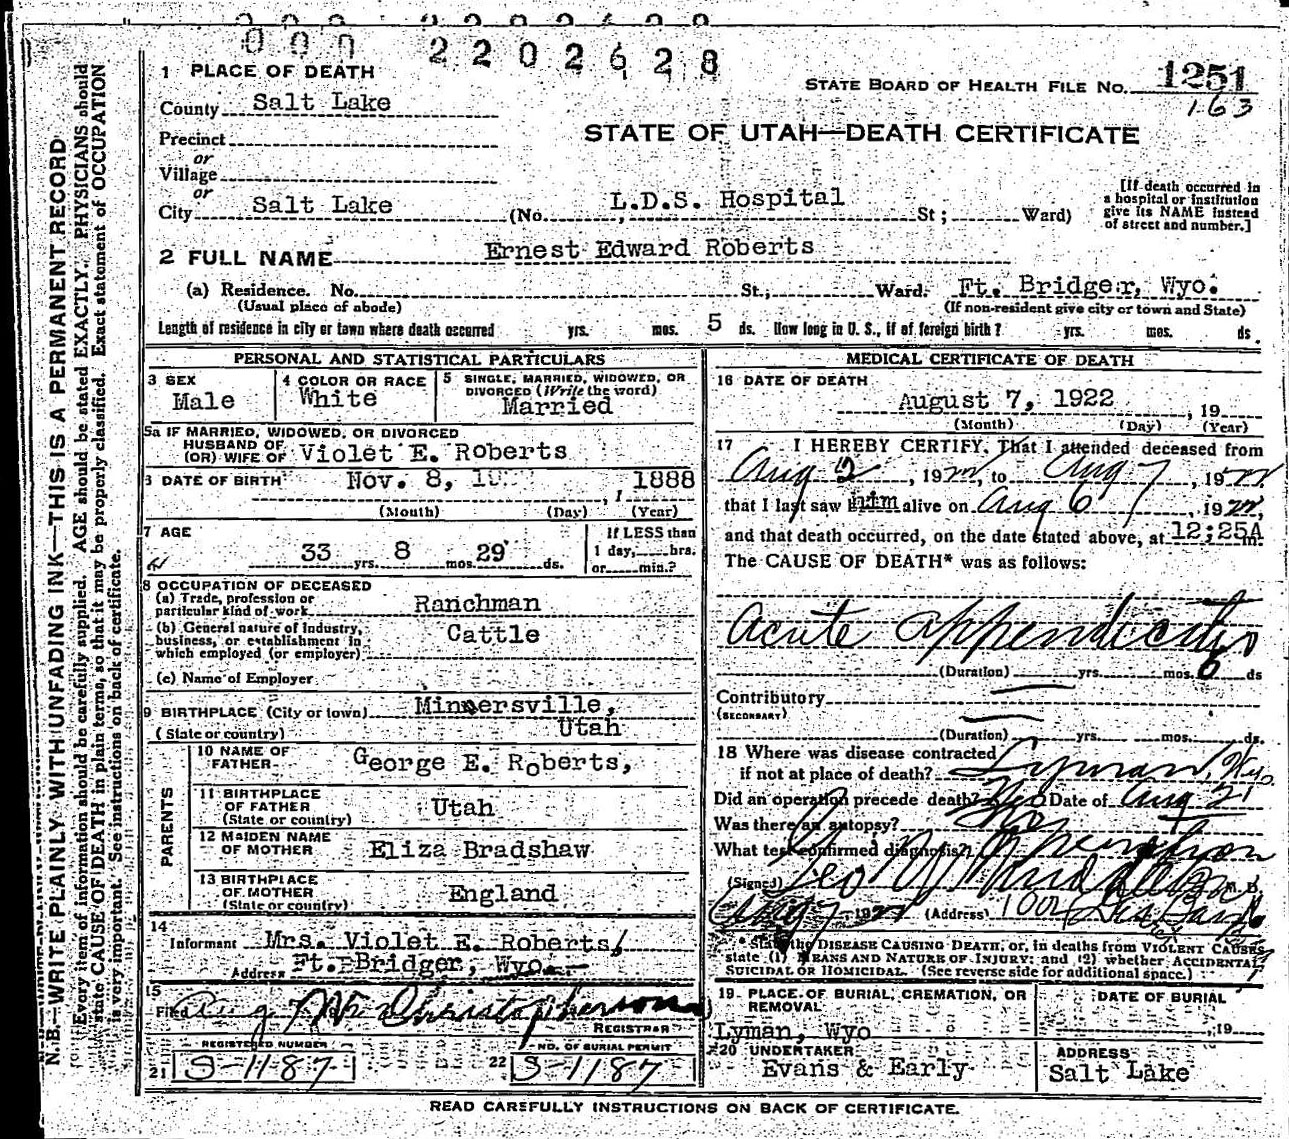 000 2202628
1 PLACE OF DEATH
STATE BOARD OF HEALTH FILE No. 1251
163
County Salt Lake
STATE OF UTAH—DEATH CERTIFICATE
Precinct
or
Village
or
City Salt Lake (No. L.D.S. Hospital St; Ward)
[If death occurred in
a hospital or institution
give its NAME instead
of street and number.]
2 FULL NAME Ernest Edward Roberts
(a) Residence. No. St., Ward. Ft. Bridger, Wyo.
(Usual place of abode) (If non-resident give city or town and State)
Length of residence in city or town where death occurred yrs. mos. 5 ds. How long in U. S., if of foreign birth? yrs. mos. ds.
PERSONAL AND STATISTICAL PARTICULARS
3 SEX
Male
4 COLOR OR RACE
White
5 SINGLE, MARRIED, WIDOWED, OR
DIVORCED (Write the word)
Married
5a IF MARRIED, WIDOWED, OR DIVORCED
HUSBAND OF
(OR) WIFE OF Violet E. Roberts
6 DATE OF BIRTH Nov. 8, 1888
(Month) (Day) (Year)
7 AGE
33 yrs. 8 mos. 29 ds.
If LESS than
1 day, hrs.
or min.?
8 OCCUPATION OF DECEASED
(a) Trade, profession or
particular kind of work Ranchman
(b) General nature of Industry,
business, or establishment in
which employed (or employer) Cattle
(c) Name of Employer
9 BIRTHPLACE (City or town) Minnersville,
(State or country) Utah
PARENTS
10 NAME OF
FATHER George E. Roberts,
11 BIRTHPLACE
OF FATHER
(State or country) Utah
12 MAIDEN NAME
OF MOTHER Eliza Bradshaw
13 BIRTHPLACE
OF MOTHER
(State or country) England
14
Informant Mrs. Violet E. Roberts,
Address Ft. Bridger, Wyo.
15
Filed Aug 7 Christophersons
REGISTRAR
REGISTERED NUMBER
21 S-1187
NO. OF BURIAL PERMIT
22 S-1187
MEDICAL CERTIFICATE OF DEATH
16 DATE OF DEATH
August 7, 1922, 19
(Month) (Day) (Year)
17 I HEREBY CERTIFY, That I attended deceased from
Aug 2, 1922, to Aug 7, 1922
that I last saw him alive on Aug 6, 1922,
and that death occurred, on the date stated above, at 12;25A m.
The CAUSE OF DEATH* was as follows:
Acute appendicitis
(Duration) yrs. mos. 6 ds
Contributory
(SECONDARY)
(Duration) yrs. mos. ds.
18 Where was disease contracted
if not at place of death? Lyman, Wyo
Did an operation precede death? Yes Date of Aug 2
Was there an autopsy? No
What test confirmed diagnosis? Operation
(Signed) Geo M. D.
Aug 7 1922 (Address)
* State the DISEASE CAUSING DEATH, or, in deaths from VIOLENT CAUSES
state (1) MEANS AND NATURE OF INJURY; and (2) whether ACCIDENTAL
SUICIDAL OR HOMICIDAL. (See reverse side for additional space.)
19 PLACE OF BURIAL, CREMATION, OR
REMOVAL
Lyman, Wyo
DATE OF BURIAL
, 19
20 UNDERTAKER
Evans & Early
ADDRESS
Salt Lake
READ CAREFULLY INSTRUCTIONS ON BACK OF CERTIFICATE.
N.B.—WRITE PLAINLY WITH UNFADING INK—THIS IS A PERMANENT RECORD
Every item of information should be carefully supplied. AGE should be stated EXACTLY. PHYSICIANS should
state CAUSE OF DEATH in plain terms, so that it may be properly classified. Exact statement of OCCUPATION
is very important. See instructions on back of certificate.